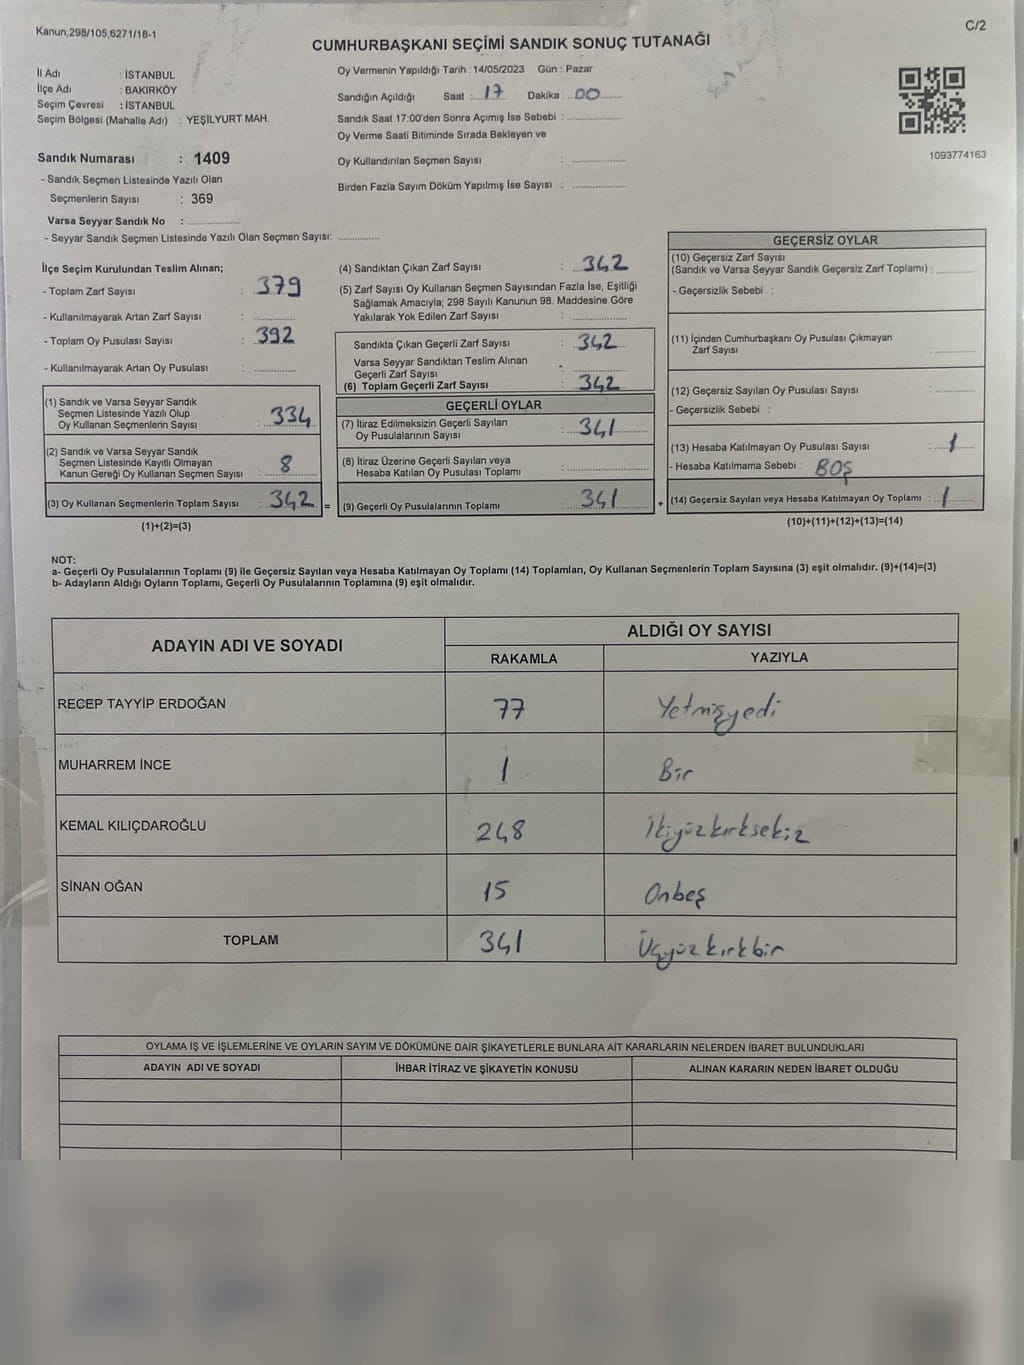 Kanun;298/105;6271/18-1
C/2
CUMHURBAŞKANI SEÇİMİ SANDIK SONUÇ TUTANAĞI
İl Adı : İSTANBUL
İlçe Adı : BAKIRKÖY
Seçim Çevresi : İSTANBUL
Seçim Bölgesi (Mahalle Adı) : YEŞİLYURT MAH.
Sandık Numarası : 1409
- Sandık Seçmen Listesinde Yazılı Olan
Seçmenlerin Sayısı : 369
Varsa Seyyar Sandık No : ..............
- Seyyar Sandık Seçmen Listesinde Yazılı Olan Seçmen Sayısı: ..............
Oy Vermenin Yapıldığı Tarih : 14/05/2023 Gün : Pazar
Sandığın Açıldığı Saat : 17 Dakika : 00
Sandık Saat 17:00'den Sonra Açımış İse Sebebi : ..............
Oy Verme Saati Bitiminde Sırada Bekleyen ve
Oy Kullandırılan Seçmen Sayısı : ..............
Birden Fazla Sayım Döküm Yapılmış İse Sayısı : ..............
1093774163
İlçe Seçim Kurulundan Teslim Alınan;
- Toplam Zarf Sayısı : 379
- Kullanılmayarak Artan Zarf Sayısı : ..............
- Toplam Oy Pusulası Sayısı : 392
- Kullanılmayarak Artan Oy Pusulası : ..............
(1) Sandık ve Varsa Seyyar Sandık
Seçmen Listesinde Yazılı Olup
Oy Kullanan Seçmenlerin Sayısı : 334
(2) Sandık ve Varsa Seyyar Sandık
Seçmen Listesinde Kayıtlı Olmayan
Kanun Gereği Oy Kullanan Seçmen Sayısı : 8
(3) Oy Kullanan Seçmenlerin Toplam Sayısı : 342 =
(1)+(2)=(3)
(4) Sandıktan Çıkan Zarf Sayısı : 342
(5) Zarf Sayısı Oy Kullanan Seçmen Sayısından Fazla İse, Eşitliği
Sağlamak Amacıyla; 298 Sayılı Kanunun 98. Maddesine Göre
Yakılarak Yok Edilen Zarf Sayısı : ..............
Sandıkta Çıkan Geçerli Zarf Sayısı : 342
Varsa Seyyar Sandıktan Teslim Alınan
Geçerli Zarf Sayısı : ..............
(6) Toplam Geçerli Zarf Sayısı : 342
GEÇERLİ OYLAR
(7) İtiraz Edilmeksizin Geçerli Sayılan
Oy Pusulalarının Sayısı : 341
(8) İtiraz Üzerine Geçerli Sayılan veya
Hesaba Katılan Oy Pusulası Toplamı : ..............
(9) Geçerli Oy Pusulalarının Toplamı : 341 +
GEÇERSİZ OYLAR
(10) Geçersiz Zarf Sayısı
(Sandık ve Varsa Seyyar Sandık Geçersiz Zarf Toplamı) : ..............
- Geçersizlik Sebebi :
(11) İçinden Cumhurbaşkanı Oy Pusulası Çıkmayan
Zarf Sayısı : ..............
(12) Geçersiz Sayılan Oy Pusulası Sayısı : ..............
- Geçersizlik Sebebi :
(13) Hesaba Katılmayan Oy Pusulası Sayısı : 1
- Hesaba Katılmama Sebebi : BOŞ
(14) Geçersiz Sayılan veya Hesaba Katılmayan Oy Toplamı : 1
(10)+(11)+(12)+(13)=(14)
NOT:
a- Geçerli Oy Pusulalarının Toplamı (9) ile Geçersiz Sayılan veya Hesaba Katılmayan Oy Toplamı (14) Toplamları, Oy Kullanan Seçmenlerin Toplam Sayısına (3) eşit olmalıdır. (9)+(14)=(3)
b- Adayların Aldığı Oyların Toplamı, Geçerli Oy Pusulalarının Toplamına (9) eşit olmalıdır.
ADAYIN ADI VE SOYADI ALDIĞI OY SAYISI
RAKAMLA YAZIYLA
RECEP TAYYİP ERDOĞAN 77 Yetmişyedi
MUHARREM İNCE 1 Bir
KEMAL KILIÇDAROĞLU 248 İkiyüzkırksekiz
SİNAN OĞAN 15 Onbeş
TOPLAM 341 Üçyüzkırkbir
OYLAMA İŞ VE İŞLEMLERİNE VE OYLARIN SAYIM VE DÖKÜMÜNE DAİR ŞİKAYETLERLE BUNLARA AİT KARARLARIN NELERDEN İBARET BULUNDUKLARI
ADAYIN ADI VE SOYADI İHBAR İTİRAZ VE ŞİKAYETİN KONUSU ALINAN KARARIN NEDEN İBARET OLDUĞU